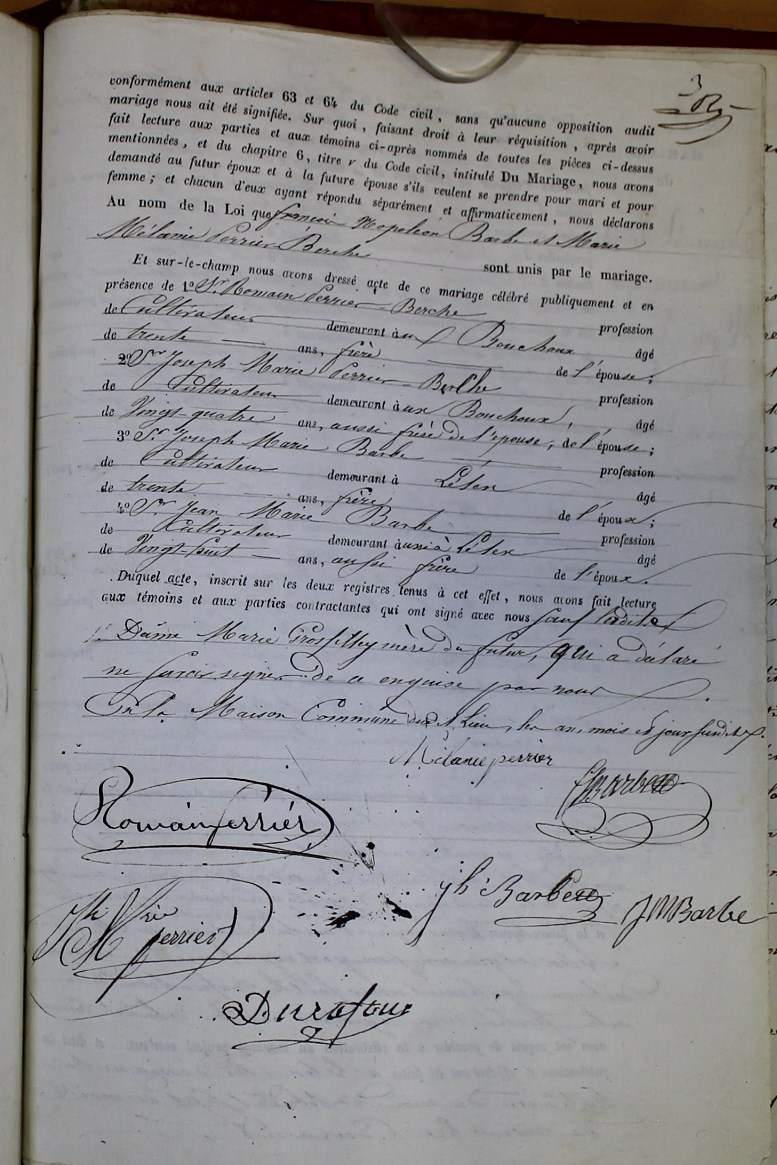 3
conformément aux articles 63 et 64 du Code civil, sans qu'aucune opposition audit
mariage nous ait été signifiée. Sur quoi, faisant droit à leur réquisition, après avoir
fait lecture aux parties et aux témoins ci-après nommés de toutes les pièces ci-dessus
mentionnées, et du chapitre 6, titre v du Code civil, intitulé Du Mariage, nous avons
demandé au futur époux et à la future épouse s'ils veulent se prendre pour mari et pour
femme; et chacun d'eux ayant répondu séparément et affirmativement, nous déclarons
Au nom de la Loi que françois Napoléon Barbe et Marie
Mélanie Perrier-Berche sont unis par le mariage.
Et sur-le-champ nous avons dressé acte de ce mariage célébré publiquement et en
présence de 1o Sr Romain Perrier-Berche profession
de Cultivateur demeurant aux Bouchoux âgé
de trente ans, frère de l'épouse;
2o Sr Joseph Marie Perrier-Berche profession
de Cultivateur demeurant à ux Bouchoux, âgé
de Vingt-quatre ans, aussi frère de l'épouse, de l'épouse;
3o Sr Joseph Marie Barbe profession
de Cultivateur demeurant à Lélex âgé
de trente ans, frère de l'époux;
4o Sr Jean Marie Barbe profession
de Cultivateur demeurant à Lélex âgé
de Vingt-huit ans, aussi frère de l'époux.
Duquel acte, inscrit sur les deux registres tenus à cet effet, nous avons fait lecture
aux témoins et aux parties contractantes qui ont signé avec nous sauf ladite
Dame Marie Grosfilley mère du futur, qui a déclaré
ne savoir signer de ce enquise par nous
En la Maison Commune dud. Lieu, les an, mois et jour susdits.
Mélanie perrier
Barbe
Romain perrier
jh Barbe
JM Barbe
Jh Mrie perrier
Durafour